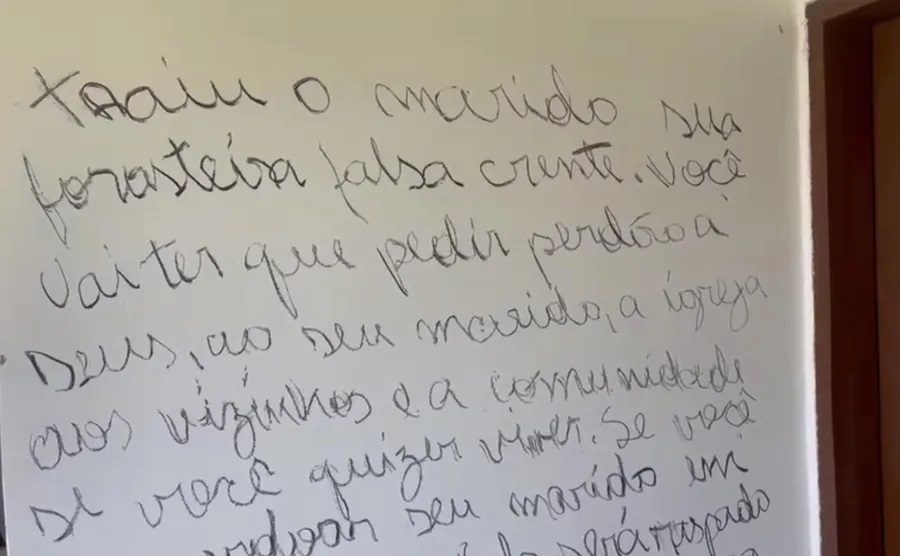 traiu o marido sua
forasteira falsa crente. você
vai ter que pedir perdão a
Deus, ao seu marido, a igreja
aos vizinhos e a comunidade
se você quizer viver. Se você
seu marido em
será raspado